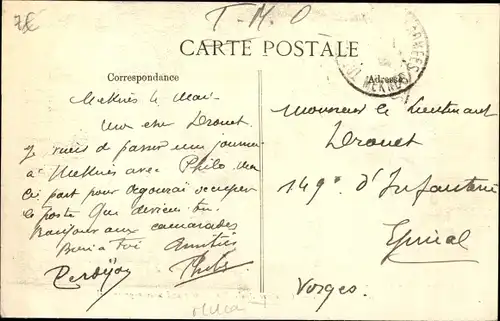 7€
T.M.O
CARTE POSTALE
Correspondance
Adresse
MEKNÈS
Meknès le Mai
Mon cher Drouet
Je viens de passer une journée
à Meknès avec Philo
part pour occuper
le poste Que deviens tu.
Bonjour aux camarades
Bien à Toi Amitiés
Monsieur le Lieutenant
Drouet
149e d'Infanterie
Epinal
Vosges.